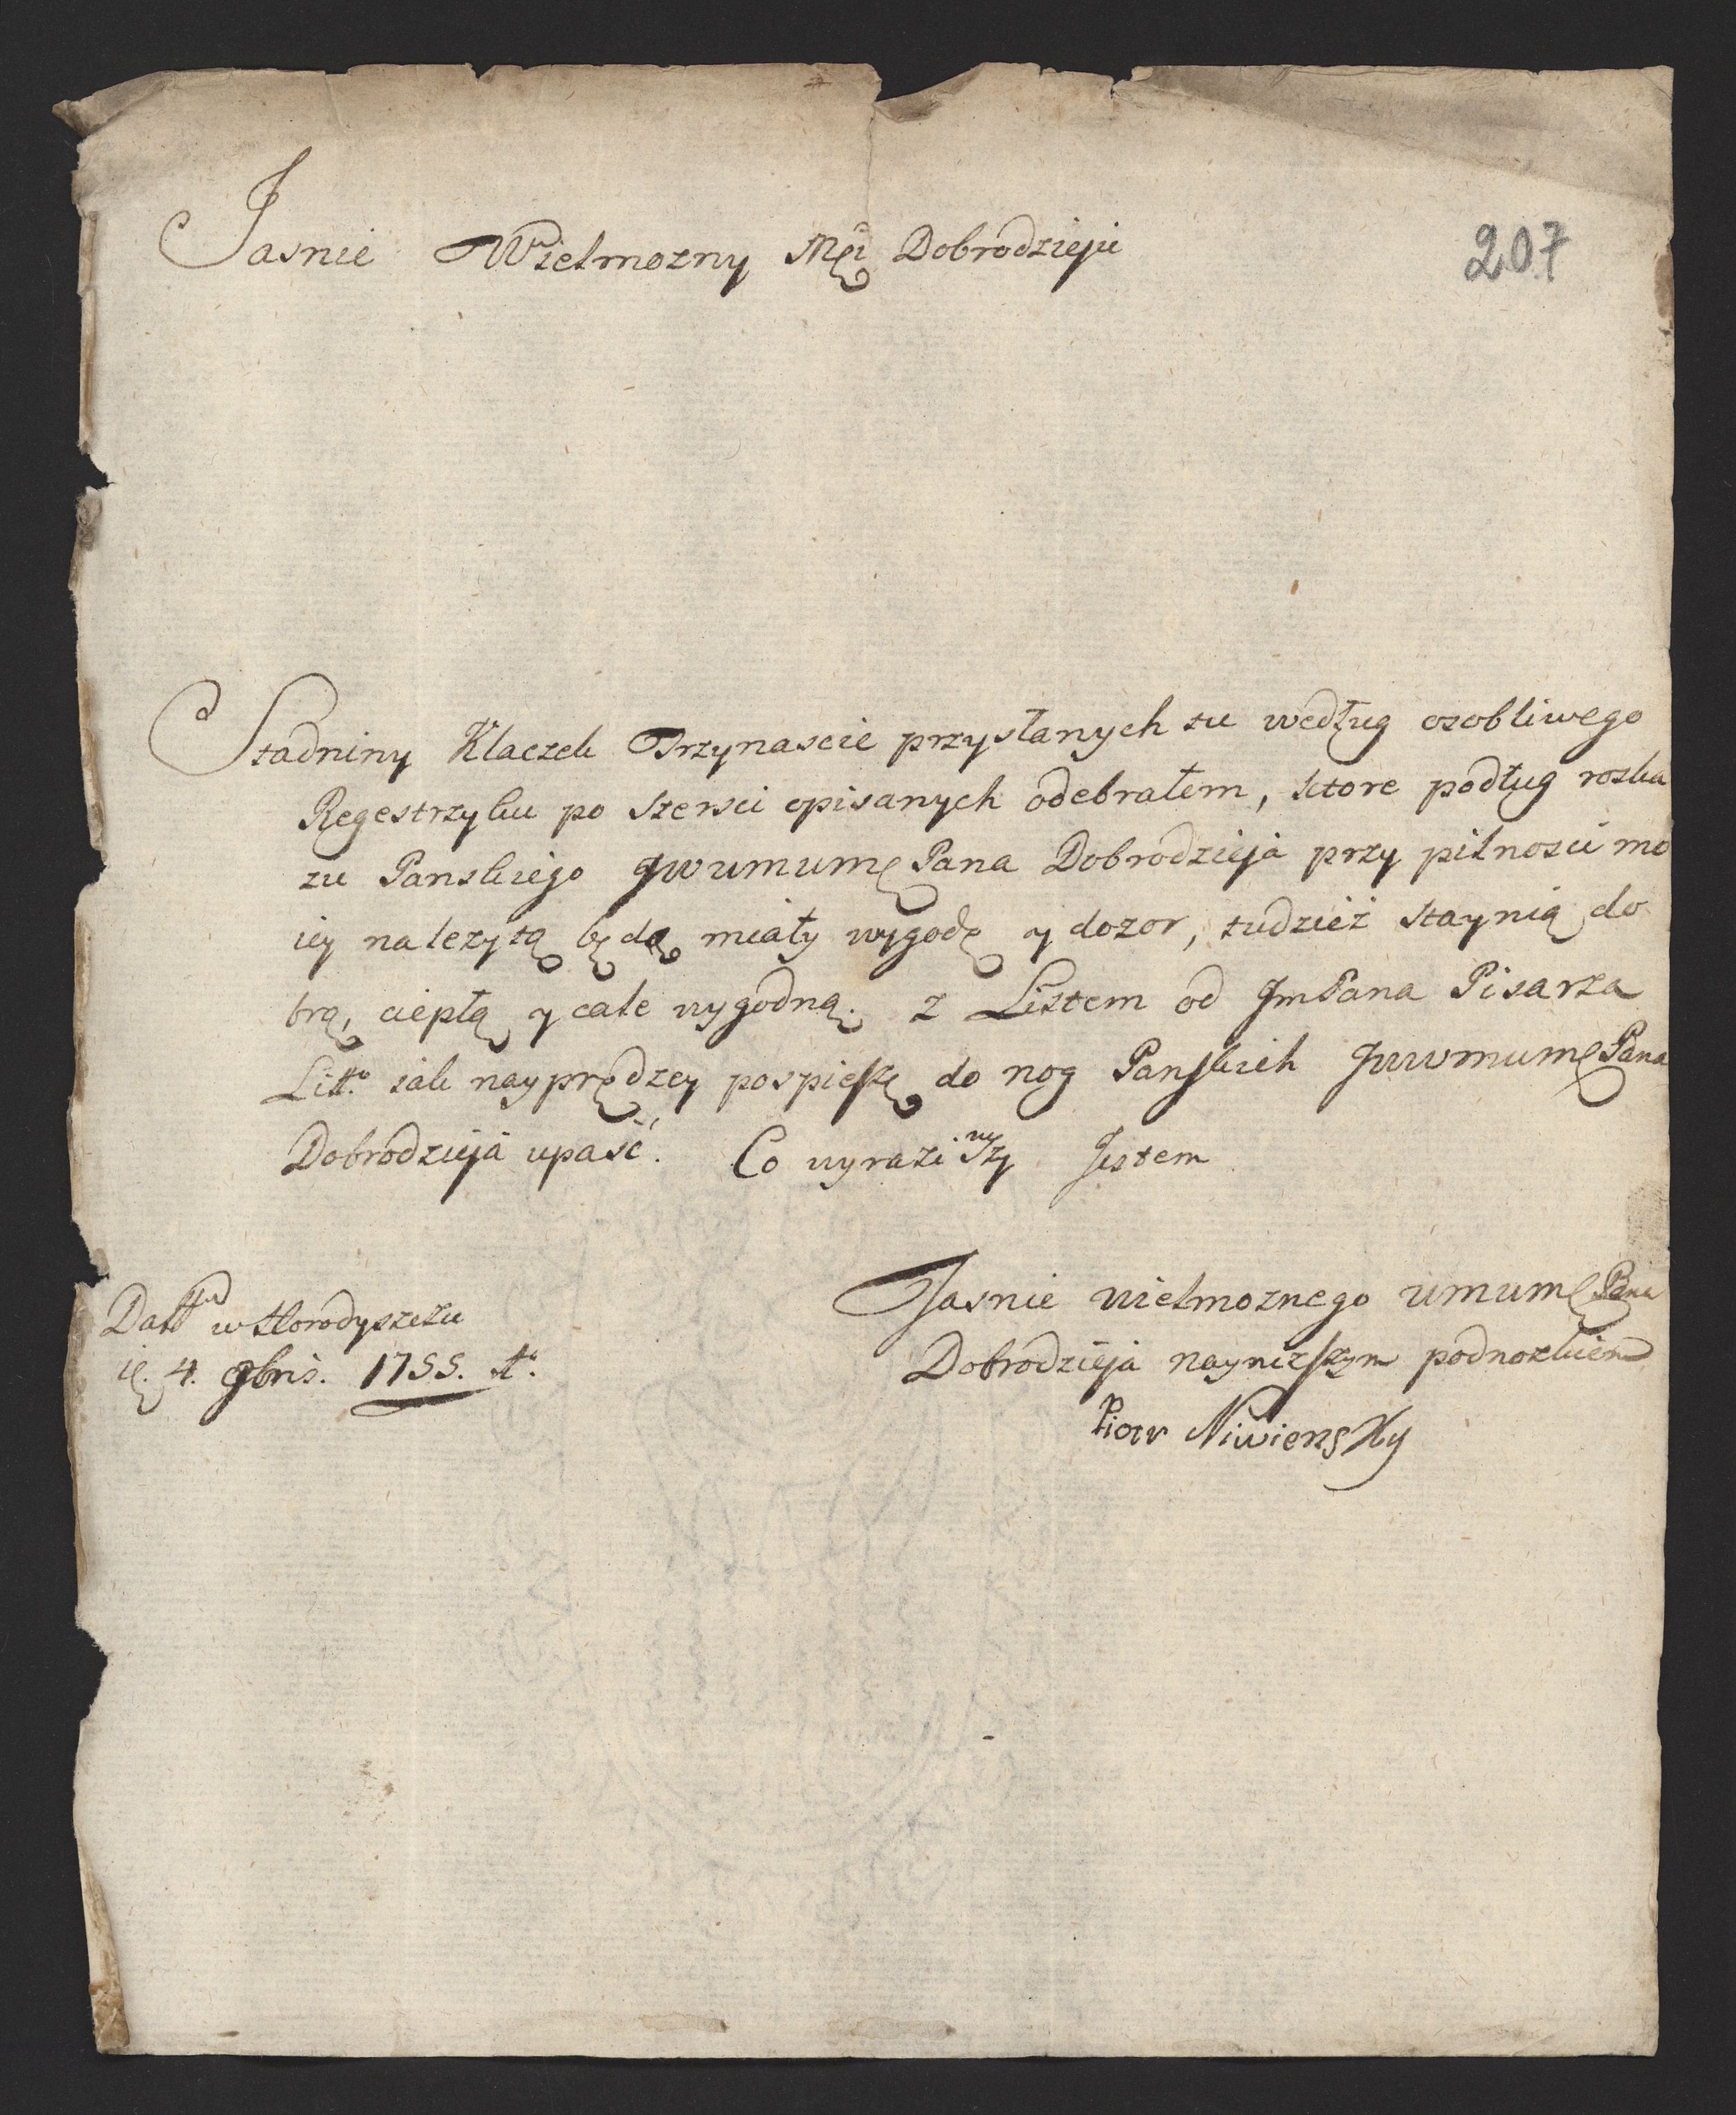 Jasnie Wielmozny Mςi Dobrodzieju
207
Stadniny Klaczek Trzynascie przysłanych tu według osobliwego
Regestrzyku po szersci opisanych odebrałem, ktore podług roska
zu Panskiego JWWMMMę Pana Dobrodzieja przy pilnosci mo
iey nalezytą będą miały wygodę y dozor, tudzież staynią do
brą, ciepłą y cale wygodną. Z Listem od JmPana Pisarza
Litto iak nayprędzey pospieszę do nog Panskich JWWMMMę Pana
Dobrodzieja upaść. Co wyraziwszy Jestem
Jasnie wielmoznego WMMMę Pana
Dobrodzieja nayniszszym podnozkiem
Piotr Niwiensky
Datt w Horodyszczu
ię. 4. 9bris. 1755. Ao.